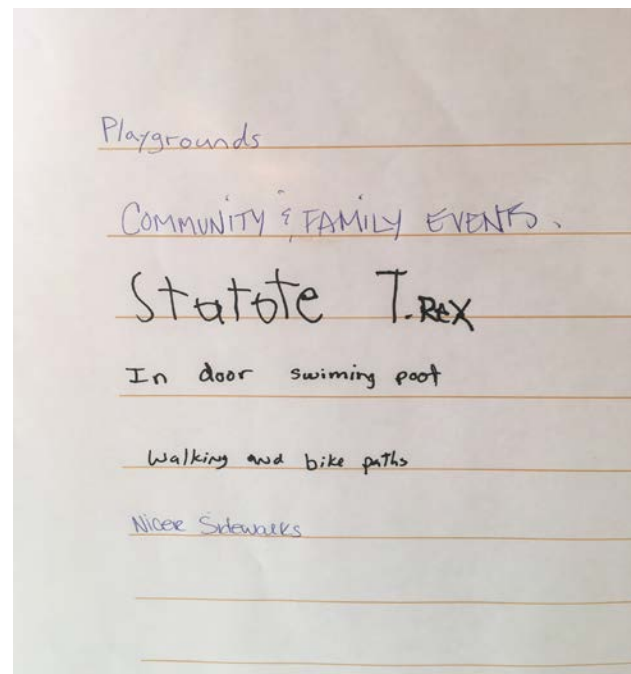 Playgrounds
COMMUNITY & FAMILY EVENTS.
Statote T.Rex
In door swiming poot
Walking and bike paths
Nicer Sidewalks